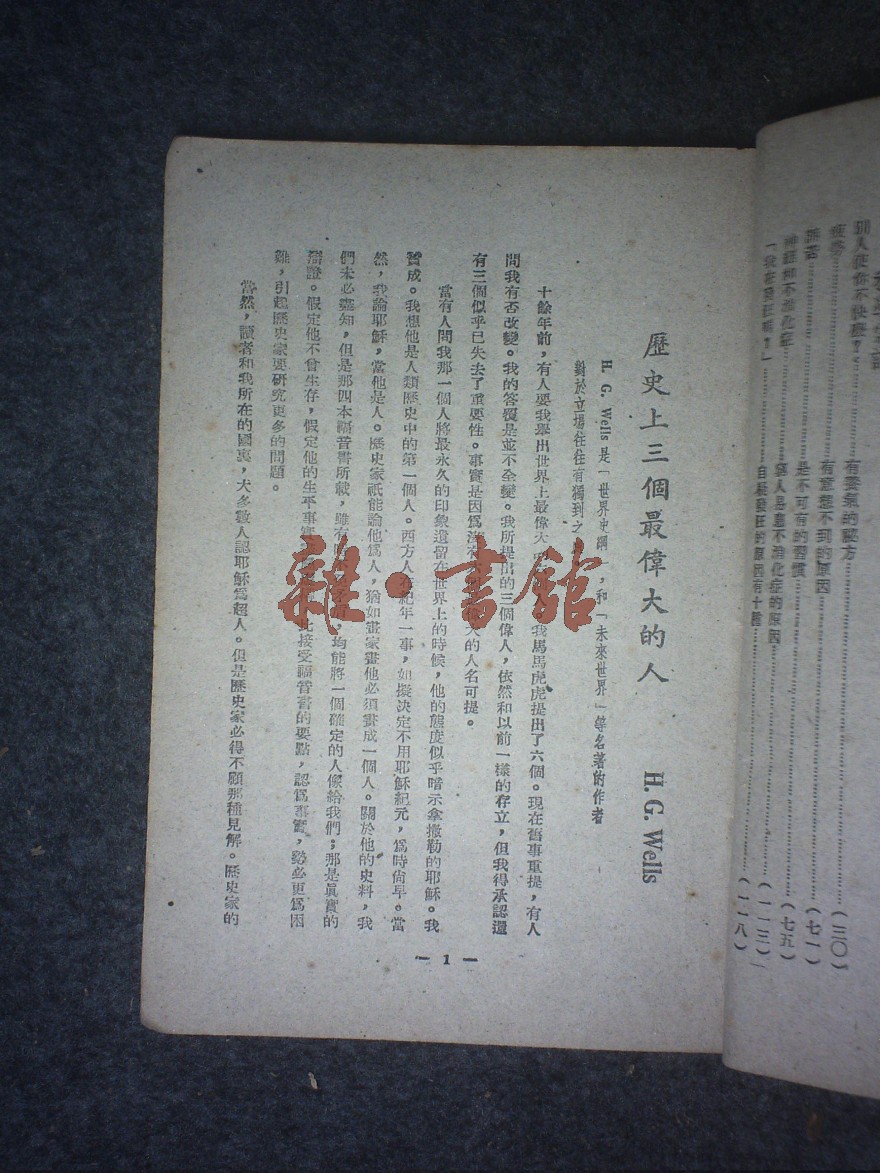 別人使你不快樂?
有喪氣的祕方
(三〇)
有意想不到的原因
(七一)
是不可有的習慣
(七五)
神經和不消化症
窮人易患不消化症的原因
(一一三)
「我在發狂嗎?」
自疑發狂的原因有十種
(一一八)
歷史上三個最偉大的人 H. G. Wells
H. G. Wells是「世界史綱」,和「未來世界」等名著的作者
對於立場往往有獨到之
十餘年前,有人要我舉出世界上最偉大 我馬馬虎虎提出了六個。現在舊事重提,有人
問我有否改變。我的答覆是並不全變。我所提出的三個偉人,依然和以前一樣的存立,但我得承認還
有三個似乎已失去了重要性。事實是因爲沒有 偉大的人名可提。
當有人問我那一個人將最永久的印象遺留在世界上的時候,他的態度似乎暗示拿撒勒的耶穌。我
贊成。我想他是人類歷史中的第一個人。西方人在紀年一事,如擬決定不用耶穌紀元,爲時尙早。當
然,我論耶穌,當他是人。歷史家祇能論他爲人,猶如畫家畫他必須畫成一個人。關於他的史料,我
們未必盡知,但是那四本福音書所載,雖有 均能將一個確定的人像給我們;那是眞實的
辯證。假定他不曾生存,假定他的生平事實 此接受福音書的要點,認爲事實,勢必更爲困
難,引起歷史家要研究更多的問題。
當然,讀者和我所在的國裏,大多數人認耶穌爲超人。但是歷史家必得不顧那種見解。歷史家的
— 1 —
雜·書館